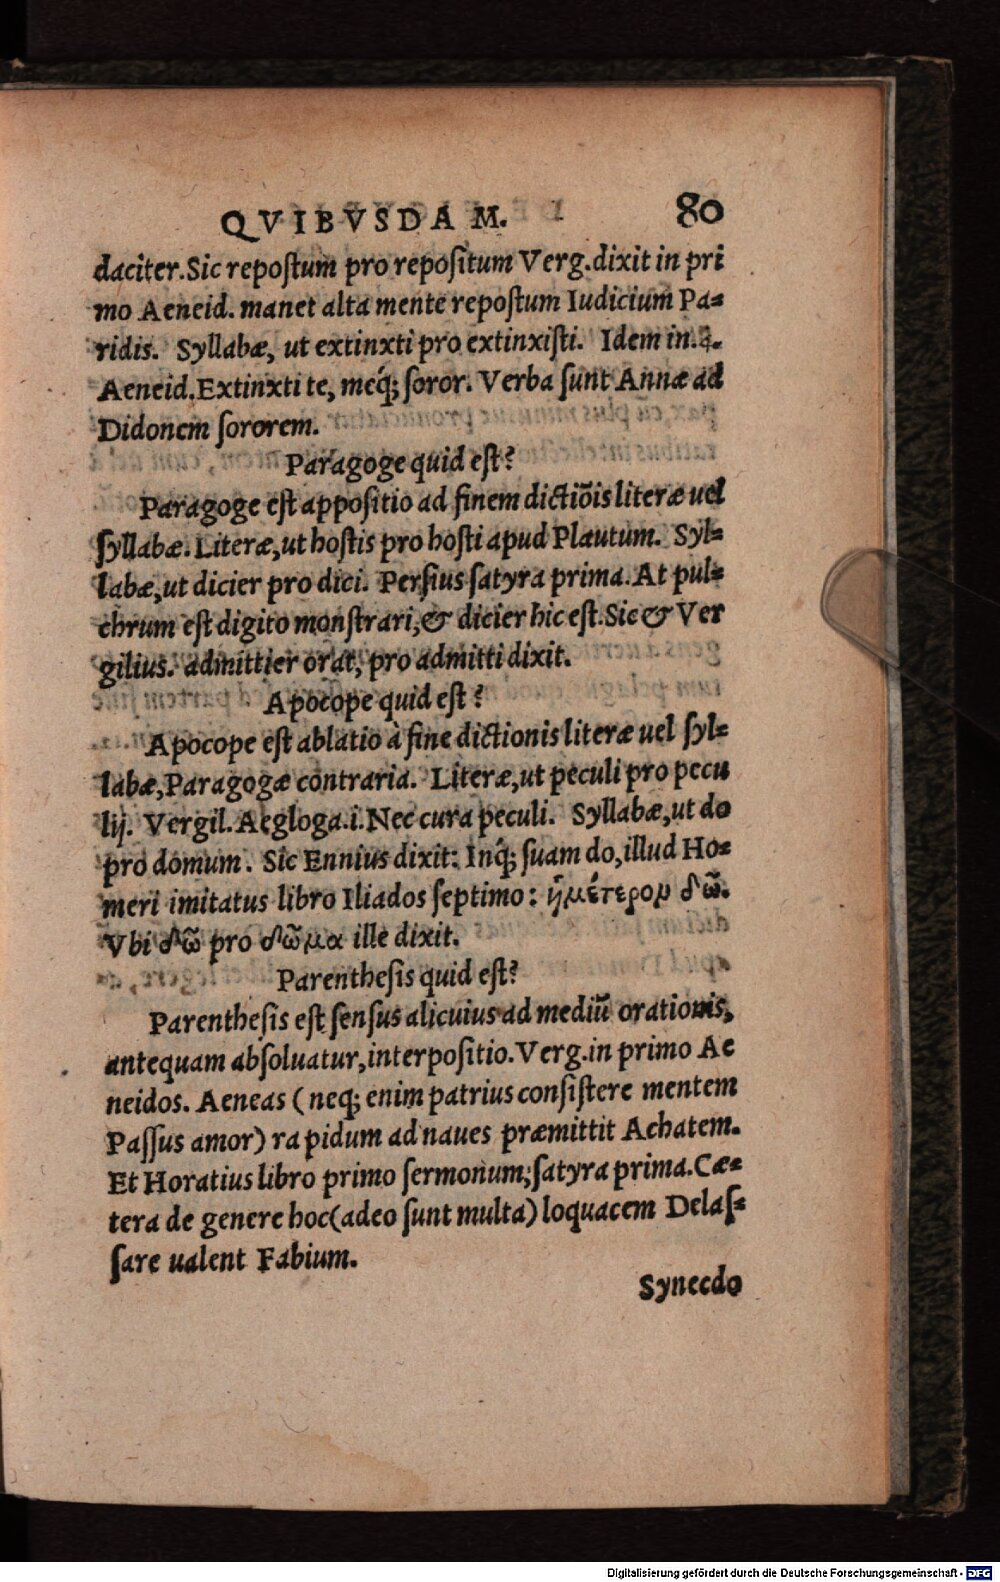 QVIBVSDAM. 80
daciter. Sic repostum pro repositum Verg. dixit in pri
mo Aeneid. manet alta mente repostum Iudicium Pa=
ridis. Syllabæ, ut extinxti pro extinxisti. Idem in .4.
Aeneid. Extinxti te, meq́; soror. Verba sunt Annæ ad
Didonem sororem.
Paragoge quid est?
Paragoge est appositio ad finem dictiõis literæ uel
syllabæ. Literæ, ut hostis pro hosti apud Plautum. Syl=
labæ, ut dicier pro dici. Persius satyra prima. At pul=
chrum est digito monstrari, & dicier hic est. Sic & Ver
gilius. admittier orat, pro admitti dixit.
Apocope quid est?
Apocope est ablatio à fine dictionis literæ uel syl=
labæ, Paragogæ contraria. Literæ, ut peculi pro pecu
lij. Vergil. Aegloga .i. Nec cura peculi. Syllabæ, ut do
pro domum. Sic Ennius dixit: Inq́; suam do, illud Ho=
meri imitatus libro Iliados septimo: ἡμέτερον δῶ.
Vbi δῶ pro δῶμα ille dixit.
Parenthesis quid est?
Parenthesis est sensus alicuius ad mediũ orationis,
antequam absoluatur, interpositio. Verg. in primo Ae
neidos. Aeneas (neq; enim patrius consistere mentem
Passus amor) rapidum ad naues præmittit Achatem.
Et Horatius libro primo sermonum; satyra prima. Cæ=
tera de genere hoc (adeo sunt multa) loquacem Delas=
sare ualent Fabium.
Synecdo
Digitalisierung gefördert durch die Deutsche Forschungsgemeinschaft - DFG